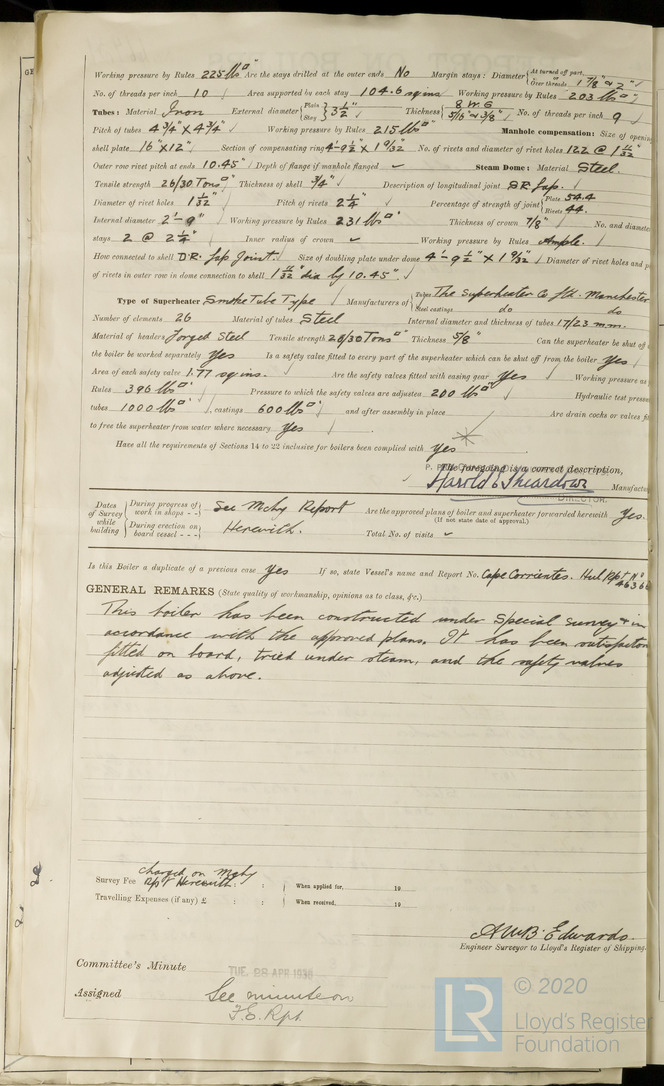 Working pressure by Rules 225 lbs □" Are the stays drilled at the outer ends No Margin stays: Diameter { At turned off part, Over threads 1 7/8" & 2"
No. of threads per inch 10 Area supported by each stay 104.6 sq ins Working pressure by Rules 203 lbs □"
Tubes: Material Iron External diameter { Plain Stay } 3 1/2" Thickness { 8 W.G 5/16" & 3/8" No. of threads per inch 9
Pitch of tubes 4 3/4" x 4 3/4" Working pressure by Rules 215 lbs □" Manhole compensation: Size of opening
shell plate 16" x 12" Section of compensating ring 4'-9 1/2" x 1 9/32" No. of rivets and diameter of rivet holes 122 @ 1 11/32"
Outer row rivet pitch at ends 10.45" Depth of flange if manhole flanged ✓ Steam Dome: Material Steel.
Tensile strength 26/30 Tons □" Thickness of shell 3/4" Description of longitudinal joint S.R. Lap.
Diameter of rivet holes 1 1/32" Pitch of rivets 2 1/4" Percentage of strength of joint { Plate 54.4 Rivets 44.
Internal diameter 2'-9" Working pressure by Rules 231 lbs □" Thickness of crown 7/8" No. and diameter
stays 2 @ 2 1/4" Inner radius of crown ✓ Working pressure by Rules Ample.
How connected to shell D.R. Lap Joint. Size of doubling plate under dome 4'-9 1/2" x 1 9/32" Diameter of rivet holes and p
of rivets in outer row in dome connection to shell 1 11/32" dia by 10.45".
Type of Superheater Smoke Tube Type Manufacturers of { Tubes The Superheater Co Ltd. Manchester
Steel castings do do
Number of elements 26 Material of tubes Steel Internal diameter and thickness of tubes 17/23 m.m.
Material of headers Forged Steel Tensile strength 26/30 Tons □" Thickness 5/8" Can the superheater be shut off
the boiler be worked separately Yes Is a safety valve fitted to every part of the superheater which can be shut off from the boiler Yes
Area of each safety valve 1.77 sq ins. Are the safety valves fitted with easing gear Yes Working pressure as
Rules 396 lbs □" Pressure to which the safety valves are adjusted 200 lbs □" Hydraulic test pressure
tubes 1000 lbs □", castings 600 lbs □" and after assembly in place Are drain cocks or valves fit
to free the superheater from water where necessary Yes
Have all the requirements of Sections 14 to 22 inclusive for boilers been complied with Yes
The foregoing is a correct description,
Manufactur
DIRECTOR.
Dates of Survey while building { During progress of work in shops - - } See Mchy Report Are the approved plans of boiler and superheater forwarded herewith Yes.
(If not state date of approval.)
{ During erection on board vessel - - - } Herewith. Total No. of visits ✓
Is this Boiler a duplicate of a previous case Yes If so, state Vessel's name and Report No. Cape Corrientes. Hul Rpt No
GENERAL REMARKS (State quality of workmanship, opinions as to class, &c.)
This boiler has been constructed under Special Survey & in
accordance with the approved plans. It has been satisfactor
fitted on board, tried under steam, and the safety valves
adjusted as above.
Charged on Mchy
Survey Fee Rpt Herewith. : : When applied for, 19
Travelling Expenses (if any) £ : : When received, 19
A.W.B. Edwards.
Engineer Surveyor to Lloyd's Register of Shipping.
Committee's Minute TUE. 28 APR 1936
Assigned See minute on
F.E. Rpt.
LR © 2020
Lloyd's Register
Foundation